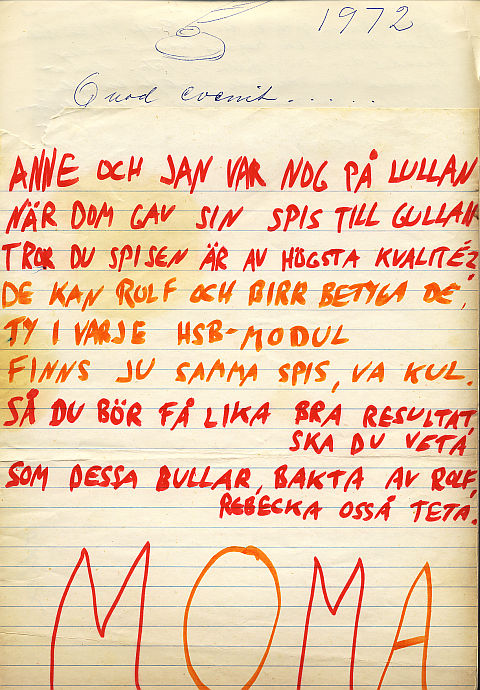 1972
Quod evenit.....
ANNE OCH JAN VAR NOG PÅ LULLAN
NÄR DOM GAV SIN SPIS TILL GULLAN
TROR DU SPISEN ÄR AV HÖGSTA KVALITÉ?
DE KAN ROLF OCH BIRR BETYGA DÉ,
TY I VARJE HSB-MODUL
FINNS JU SAMMA SPIS, VA KUL.
SÅ DU BÖR FÅ LIKA BRA RESULTAT,
SKA DU VETA
SOM DESSA BULLAR, BAKTA AV ROLF,
REBECKA OSSÅ TETA.
MOMA